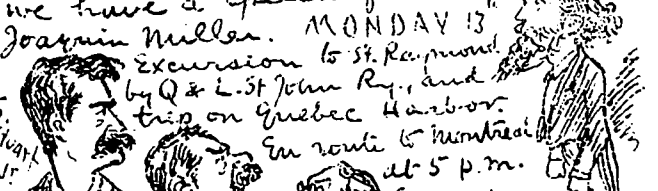 we have a
Joaquin Miller. MONDAY 13
Excursion to St. Raymond
by Q & L. St John Ry., and
trip on Quebec Harbor.
En route to Montreal
at 5 p.m.